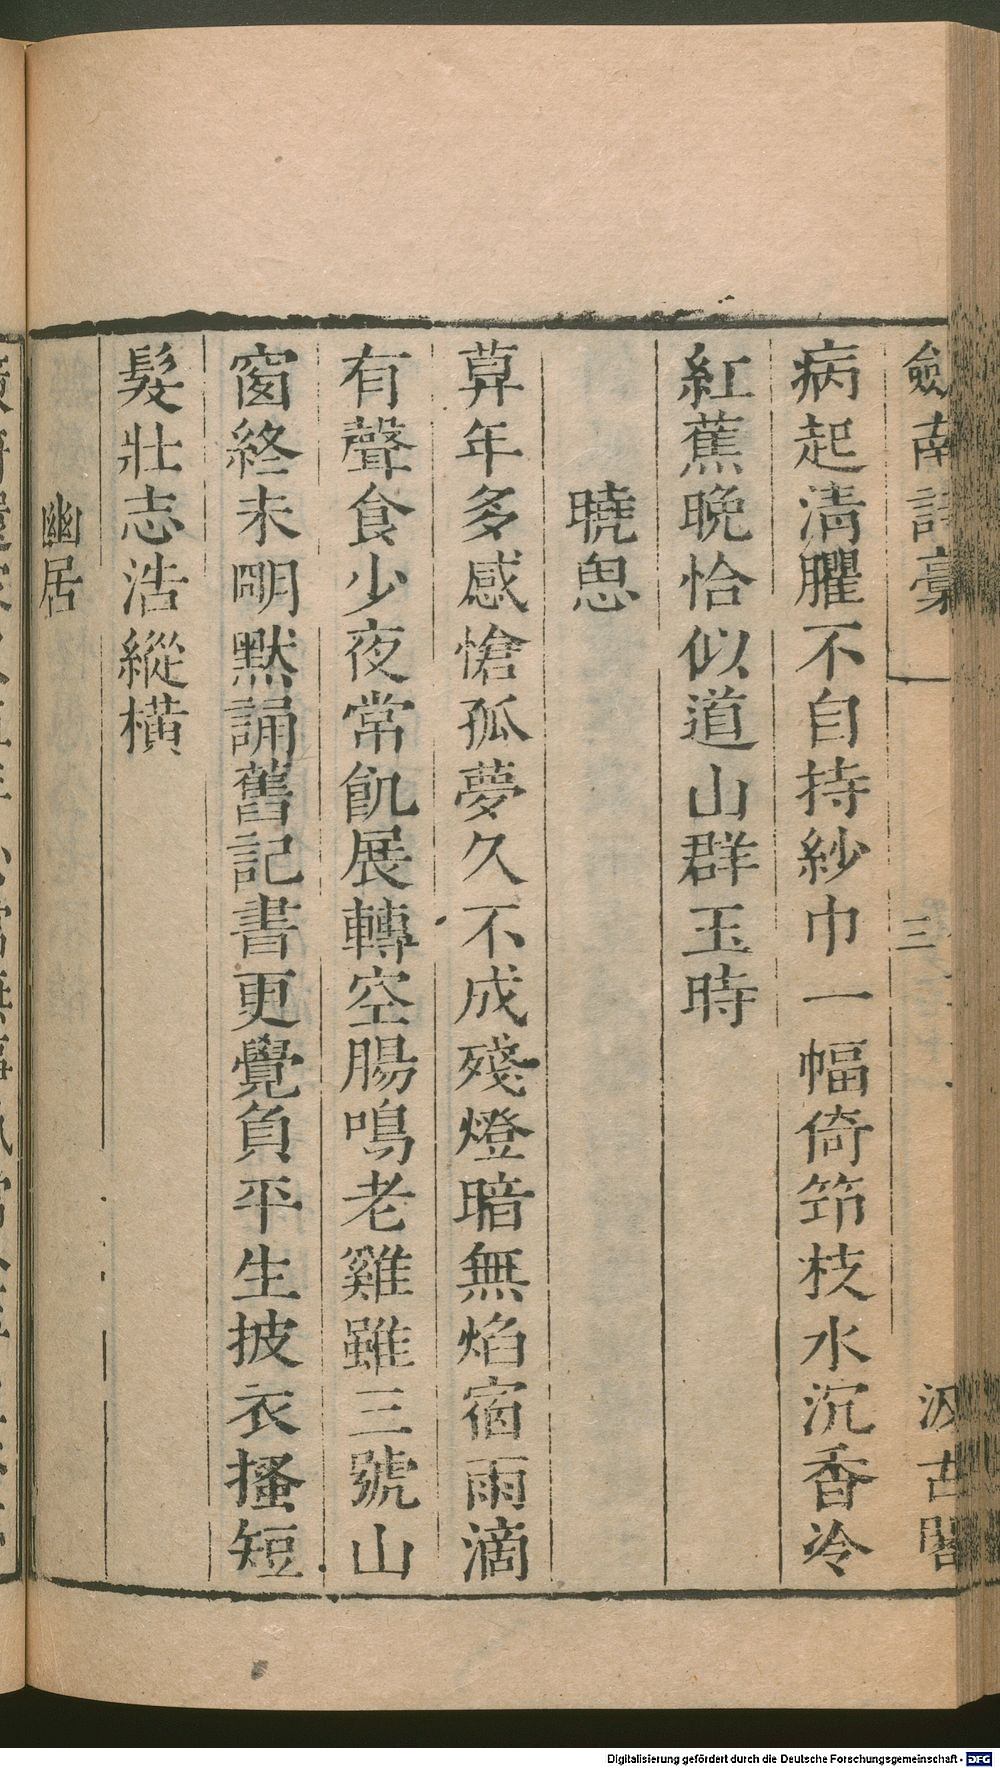 劒南詩稾
三
汲古閣
病起清臞不自持紗巾一幅倚笻枝水沉香冷
紅蕉晚恰似道山群玉時
曉思
算年多感愴孤夢久不成殘燈暗無焰宿雨滴
有聲食少夜常飢展轉空腸鳴老雞雖三號山
窗終未明默誦舊記書更覺負平生披衣搔短
髮壯志浩縱橫
幽居
Digitalisierung gefördert durch die Deutsche Forschungsgemeinschaft - DFG